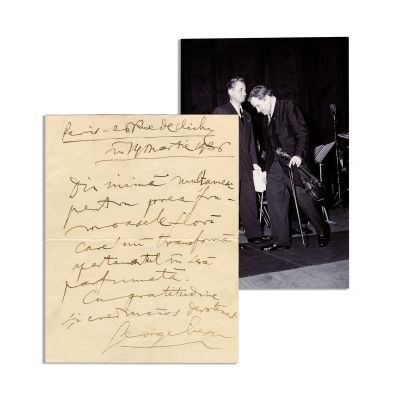 Paris – 26 Rue de Clichy
19 Martie 1936
Din inimă mulțumesc
pentru prea fru-
moasele flori
care mi transformă
apartamentul în seră
parfumată.
Cu gratitudine
și devotament
George Enescu